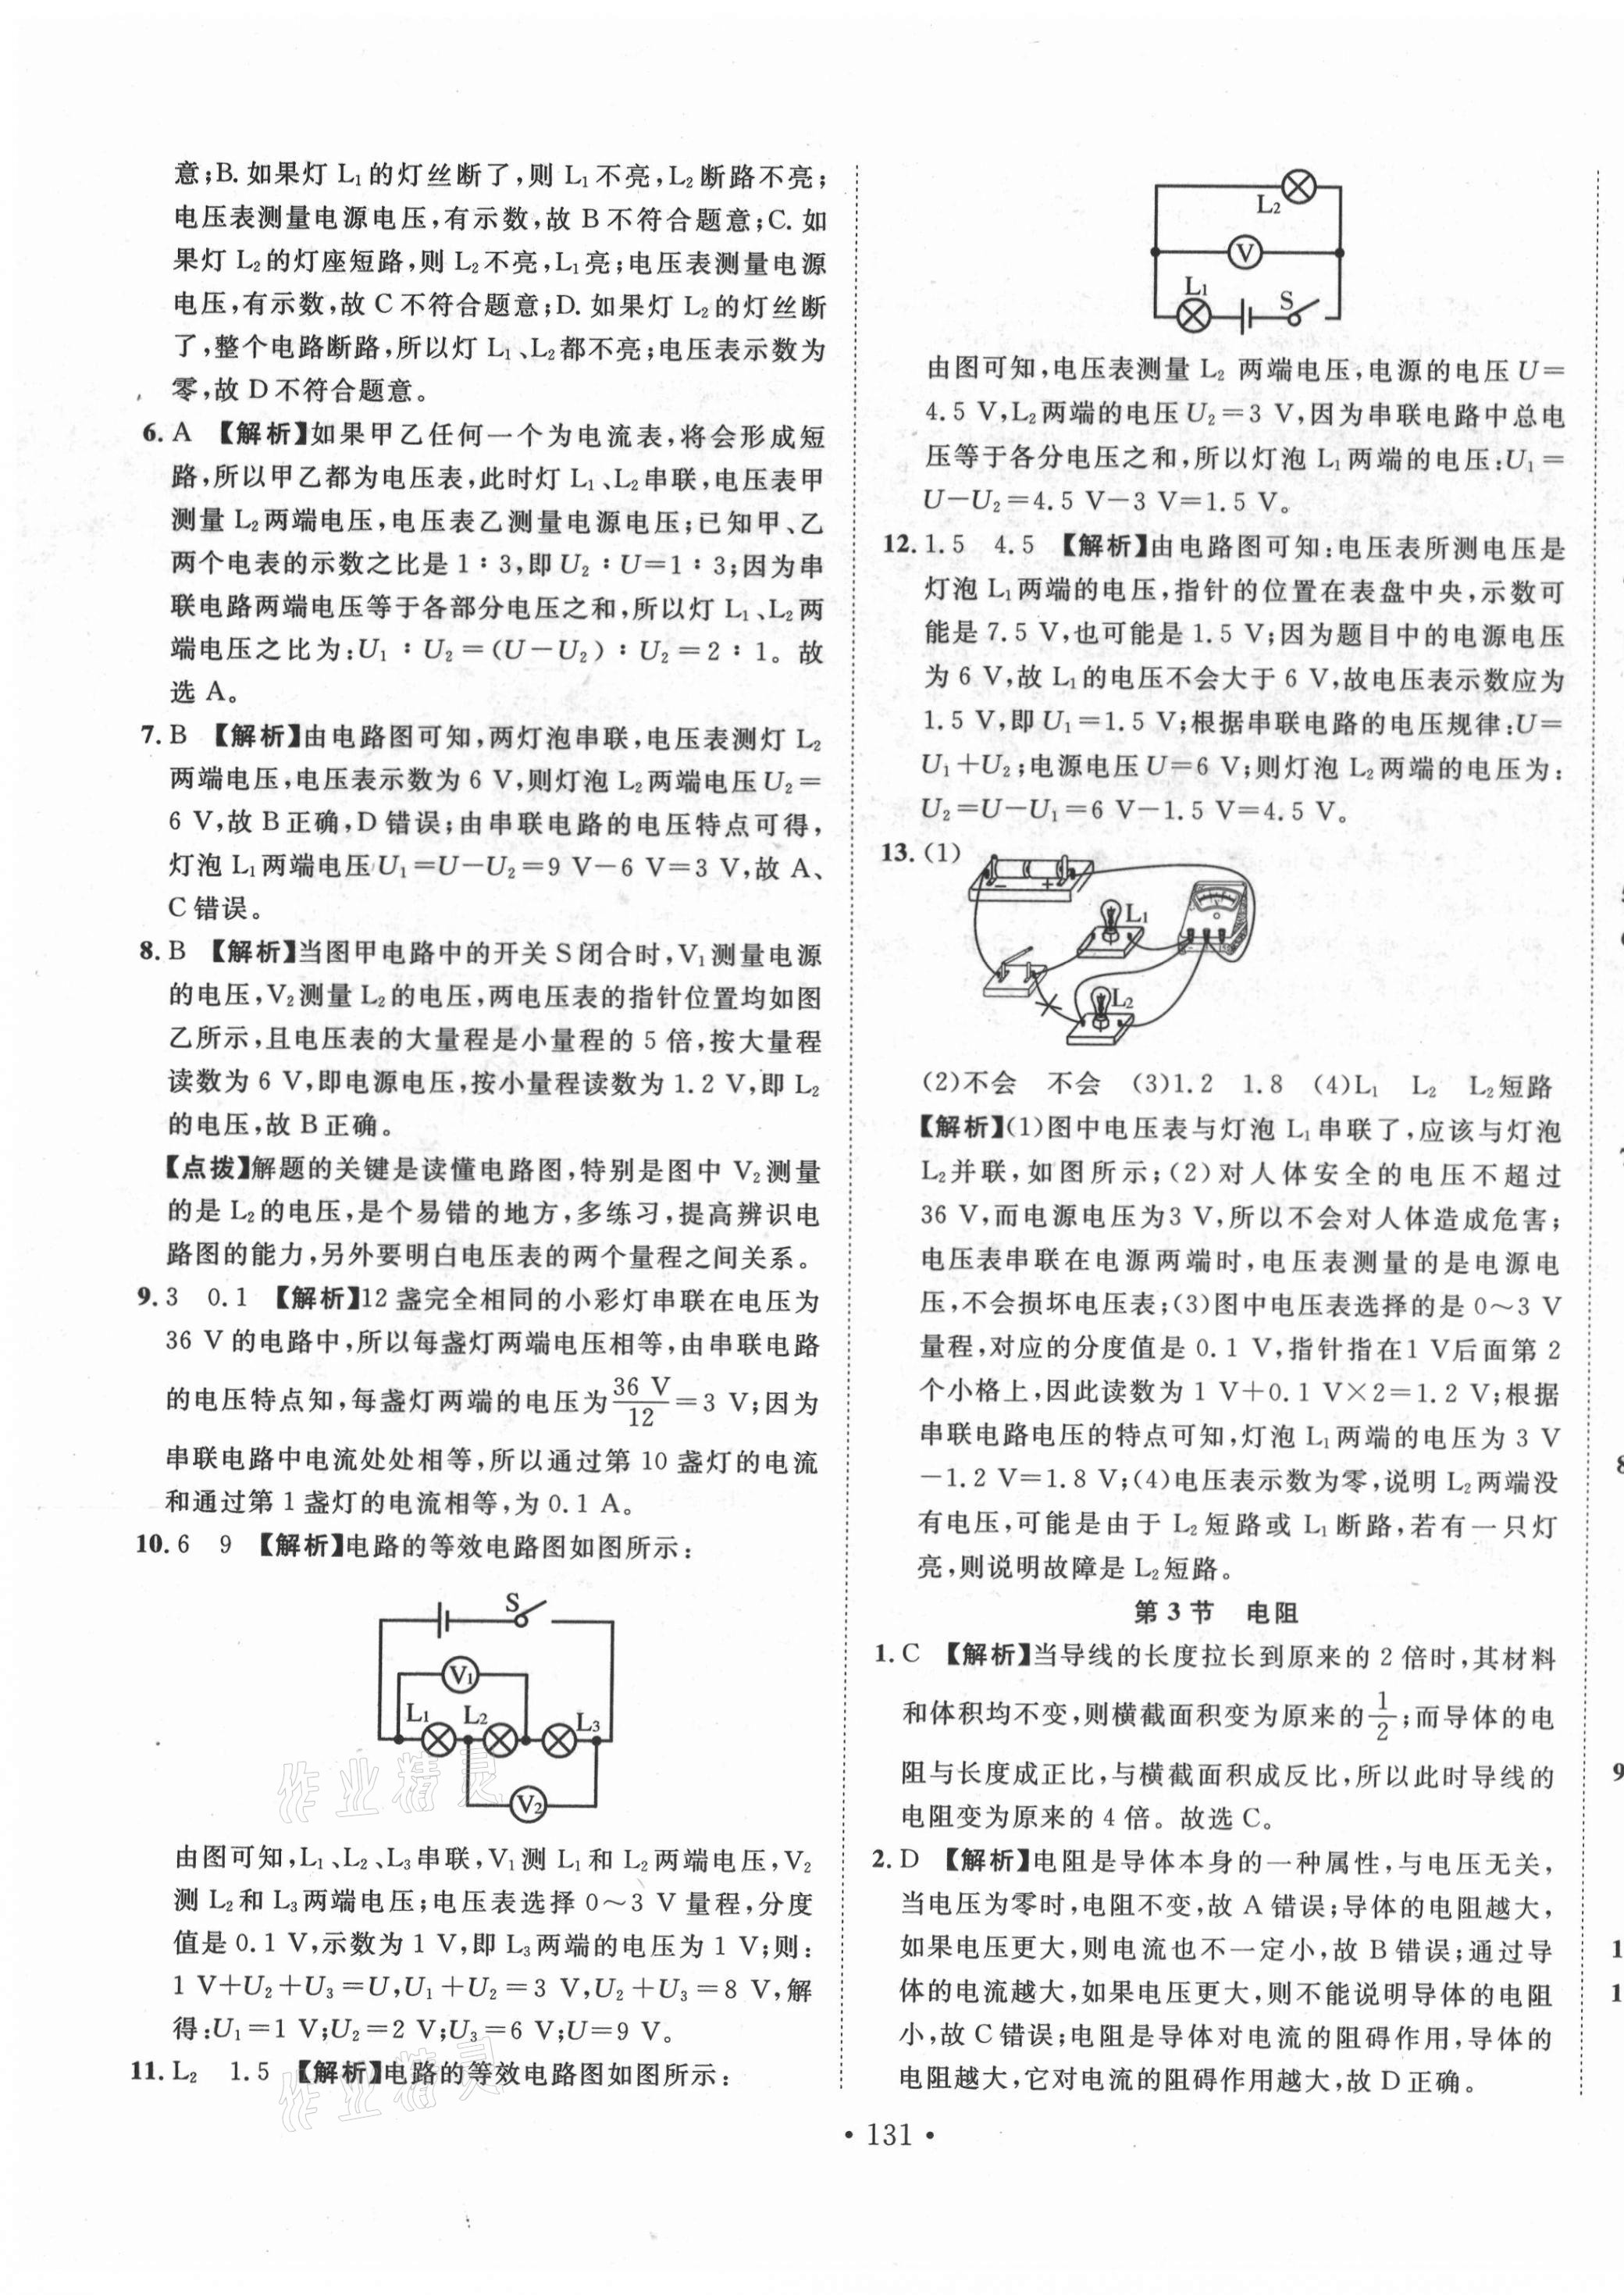 意;B. 如果灯 L₁的灯丝断了,则 L₁不亮,L₂断路不亮;
电压表测量电源电压,有示数,故 B 不符合题意;C. 如
果灯 L₂的灯座短路,则 L₂不亮,L₁亮;电压表测量电源
电压,有示数,故 C 不符合题意;D. 如果灯 L₂的灯丝断
了,整个电路断路,所以灯 L₁、L₂都不亮;电压表示数为
零,故 D 不符合题意。
6. A 【解析】如果甲乙任何一个为电流表,将会形成短
路,所以甲乙都为电压表,此时灯 L₁、L₂串联,电压表甲
测量 L₂两端电压,电压表乙测量电源电压;已知甲、乙
两个电表的示数之比是 1∶3,即 U₂∶U=1∶3;因为串
联电路两端电压等于各部分电压之和,所以灯 L₁、L₂两
端电压之比为:U₁∶U₂=(U-U₂)∶U₂=2∶1。故
选 A。
7. B 【解析】由电路图可知,两灯泡串联,电压表测灯 L₂
两端电压,电压表示数为 6 V,则灯泡 L₂两端电压U₂=
6 V,故 B 正确,D 错误;由串联电路的电压特点可得,
灯泡 L₁两端电压U₁=U-U₂=9 V-6 V=3 V,故 A、
C 错误。
8. B 【解析】当图甲电路中的开关 S 闭合时,V₁测量电源
的电压,V₂测量 L₂的电压,两电压表的指针位置均如图
乙所示,且电压表的大量程是小量程的 5 倍,按大量程
读数为 6 V,即电源电压,按小量程读数为 1.2 V,即 L₂
的电压,故 B 正确。
【点拨】解题的关键是读懂电路图,特别是图中 V₂测量
的是 L₂的电压,是个易错的地方,多练习,提高辨识电
路图的能力,另外要明白电压表的两个量程之间关系。
9. 3 0.1 【解析】12 盏完全相同的小彩灯串联在电压为
36 V 的电路中,所以每盏灯两端电压相等,由串联电路
的电压特点知,每盏灯两端的电压为36 V/12=3 V;因为
串联电路中电流处处相等,所以通过第 10 盏灯的电流
和通过第 1 盏灯的电流相等,为 0.1 A。
10. 6 9 【解析】电路的等效电路图如图所示:
S
V₁
L₁ L₂ L₃
V₂
由图可知,L₁、L₂、L₃串联,V₁测 L₁和 L₂两端电压,V₂
测 L₂和 L₃两端电压;电压表选择 0～3 V 量程,分度
值是 0.1 V,示数为 1 V,即 L₃两端的电压为 1 V;则:
1 V+U₂+U₃=U,U₁+U₂=3 V,U₂+U₃=8 V,解
得:U₁=1 V;U₂=2 V;U₃=6 V;U=9 V。
11. L₂ 1.5 【解析】电路的等效电路图如图所示:
L₂
V
L₁ S
由图可知,电压表测量 L₂ 两端电压,电源的电压 U=
4.5 V,L₂两端的电压 U₂=3 V,因为串联电路中总电
压等于各分电压之和,所以灯泡 L₁两端的电压:U₁=
U-U₂=4.5 V-3 V=1.5 V。
12. 1.5 4.5 【解析】由电路图可知:电压表所测电压是
灯泡 L₁两端的电压,指针的位置在表盘中央,示数可
能是 7.5 V,也可能是 1.5 V;因为题目中的电源电压
为 6 V,故 L₁的电压不会大于 6 V,故电压表示数应为
1.5 V,即U₁=1.5 V;根据串联电路的电压规律:U=
U₁+U₂;电源电压U=6 V;则灯泡 L₂两端的电压为:
U₂=U-U₁=6 V-1.5 V=4.5 V。
13. (1)
- +
L₁
L₂
(2)不会 不会 (3)1.2 1.8 (4)L₁ L₂ L₂短路
【解析】(1)图中电压表与灯泡 L₁串联了,应该与灯泡
L₂并联,如图所示;(2)对人体安全的电压不超过
36 V,而电源电压为3 V,所以不会对人体造成危害;
电压表串联在电源两端时,电压表测量的是电源电
压,不会损坏电压表;(3)图中电压表选择的是 0～3 V
量程,对应的分度值是 0.1 V,指针指在1 V后面第 2
个小格上,因此读数为 1 V+0.1 V×2=1.2 V;根据
串联电路电压的特点可知,灯泡 L₁两端的电压为 3 V
-1.2 V=1.8 V;(4)电压表示数为零,说明 L₂两端没
有电压,可能是由于 L₂短路或 L₁断路,若有一只灯
亮,则说明故障是 L₂短路。
第 3 节 电阻
1. C 【解析】当导线的长度拉长到原来的 2 倍时,其材料
和体积均不变,则横截面积变为原来的1/2;而导体的电
阻与长度成正比,与横截面积成反比,所以此时导线的
电阻变为原来的 4 倍。故选 C。
2. D 【解析】电阻是导体本身的一种属性,与电压无关,
当电压为零时,电阻不变,故 A 错误;导体的电阻越大,
如果电压更大,则电流也不一定小,故 B 错误;通过导
体的电流越大,如果电压更大,则不能说明导体的电阻
小,故 C 错误;电阻是导体对电流的阻碍作用,导体的
电阻越大,它对电流的阻碍作用越大,故 D 正确。
· 131 ·
作业精灵
作业精灵